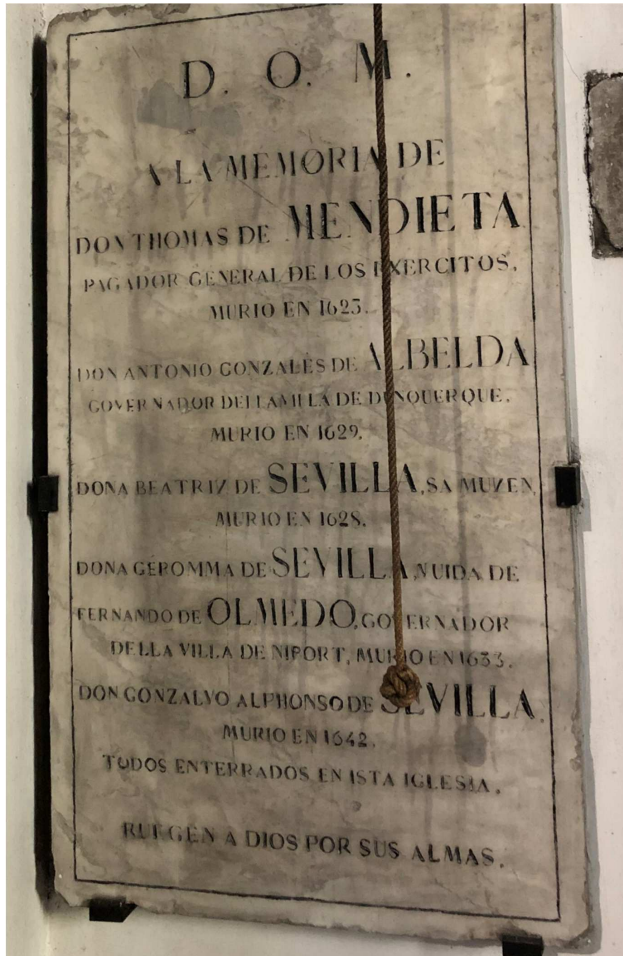 D. O. M.
A LA MEMORIA DE
DON THOMAS DE MENDIETA
PAGADOR GENERAL DE LOS EXERCITOS,
MURIO EN 1623.
DON ANTONIO GONZALES DE ALBELDA
GOVERNADOR DELLA VILLA DE DUNQUERQUE.
MURIO EN 1629.
DONA BEATRIZ DE SEVILLA, SA MUZEN,
MURIO EN 1628.
DONA GEROMMA DE SEVILLA, NUIDA DE
FERNANDO DE OLMEDO, GOVERNADOR
DELLA VILLA DE NIPORT, MURIO EN 1633.
DON GONZALVO ALPHONSO DE SEVILLA,
MURIO EN 1642.
TODOS ENTERRADOS EN ISTA IGLESIA.
RUEGEN A DIOS POR SUS ALMAS.